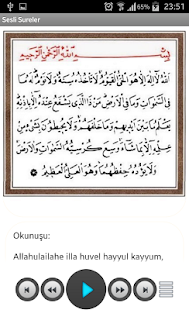 23:51
Sesli Sureler
بِسْمِ اللّٰهِ الرَّحْمٰنِ الرَّحِيمِ
اَللّٰهُ لَٓا اِلٰهَ اِلَّا هُوَ الْحَيُّ الْقَيُّومُ لَا تَأْخُذُهُ سِنَةٌ وَلَا نَوْمٌ لَهُ مَا
فِي السَّمٰوَاتِ وَمَا فِي الْاَرْضِ مَنْ ذَا الَّذِي يَشْفَعُ عِنْدَهُ اِلَّا بِاِذْنِهِ
يَعْلَمُ مَا بَيْنَ اَيْدِيهِمْ وَمَا خَلْفَهُمْ وَلَا يُحِيطُونَ بِشَيْءٍ مِنْ
عِلْمِهِ اِلَّا بِمَا شَٓاءَ وَسِعَ كُرْسِيُّهُ السَّمٰوَاتِ وَالْاَرْضَ
وَلَا يَؤُدُهُ حِفْظُهُمَا وَهُوَ الْعَلِيُّ الْعَظِيمُ
Okunuşu:
Allahulailahe illa huvel hayyul kayyum,